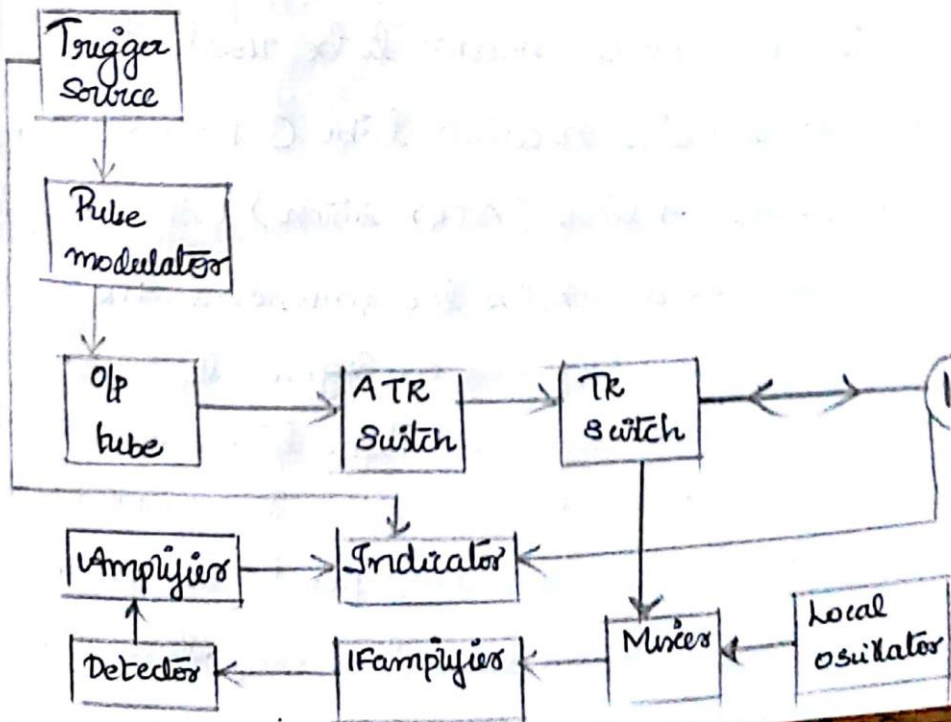 Trigger
Source
Pulse
modulator
O/p
tube
ATR
Switch
TR
Switch
Amplifier
Indicator
Detector
IF amplifier
Mixer
Local
Oscillator